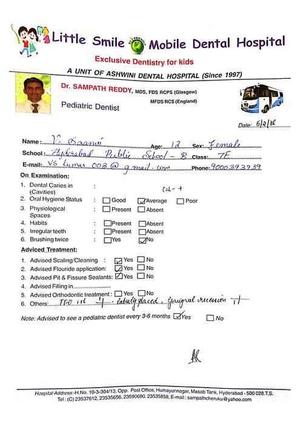 Little Smile Mobile Dental Hospital
Exclusive Dentistry for kids
A UNIT OF ASHWINI DENTAL HOSPITAL (Since 1997)
Dr. SAMPATH REDDY, MDS, FDS RCPS (Glasgow)
MFDS RCS (England)
Pediatric Dentist
Date: 6/2/16
Name: V. Age: 12 Sex: Female
School: Hyderabad Public School - B Class: 7E
E-mail: @gmail.com Phone: 9000393939
On Examination:
1. Dental Caries in (Cavities)
2. Oral Hygiene Status : Good Average Poor
3. Physiological Spaces : Present Absent
4. Habits : Present Absent
5. Irregular teeth : Present Absent
6. Brushing twice : Yes No
Adviced Treatment:
1. Advised Scaling/Cleaning : Yes No
2. Advised Fluoride application: Yes No
3. Advised Pit & Fissure Sealants: Yes No
4. Advised Filling in
5. Advised Orthodontic treatment : Yes No
6. Others : labially placed, gingival recession
Note: Advised to see a pediatric dentist every 3-6 months Yes No
Hospital Address: H.No. 10-3-304/13, Opp. Post Office, Humayunnagar, Masab Tank, Hyderabad - 500 028.T.S.
Tel : (C) 23537612, 23535656, 23590690, 23535858, E-mail : sampathchenuku@yahoo.com